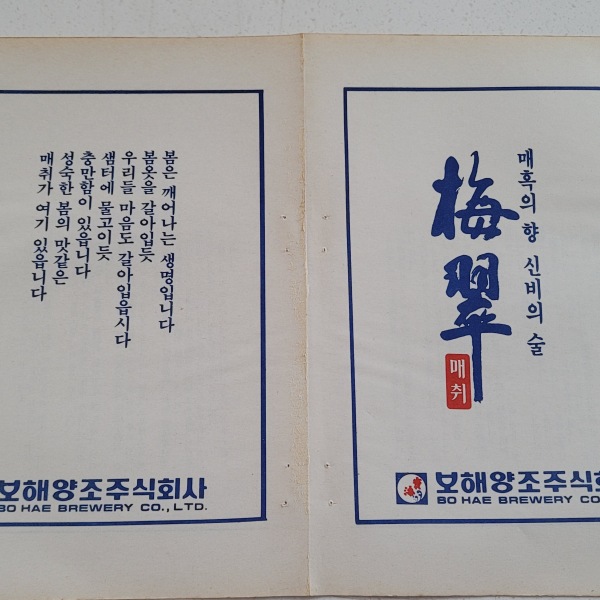 매혹의 향 신비의 술
梅翠
매취
보해양조주식회
BO HAE BREWERY CO
봄은 깨어나는 생명입니다
봄옷을 갈아입듯
우리들 마음도 갈아입읍시다
샘터에 물고이듯
충만함이 있읍니다
성숙한 봄의 맛같은
매취가 여기 있읍니다
보해양조주식회사
BO HAE BREWERY CO., LTD.